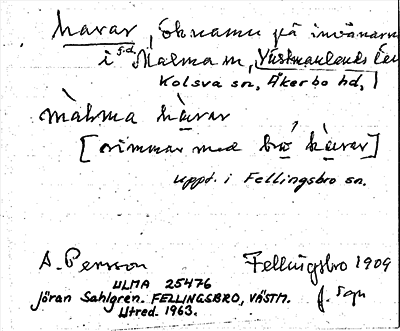 harar, öknamn på invånarn
i s.d. Malma m, Västmanlands län
Kolsva sn, Åkerbo hd,
màlma hàrar
[rimmar med bro hàrar]
uppt. i Fellingsbro sn.
A. Persson Fellingsbro 1909
ULMA 25476
Jöran Sahlgren. FELLINGSBRO, VÄSTM.
Utred. 1963.